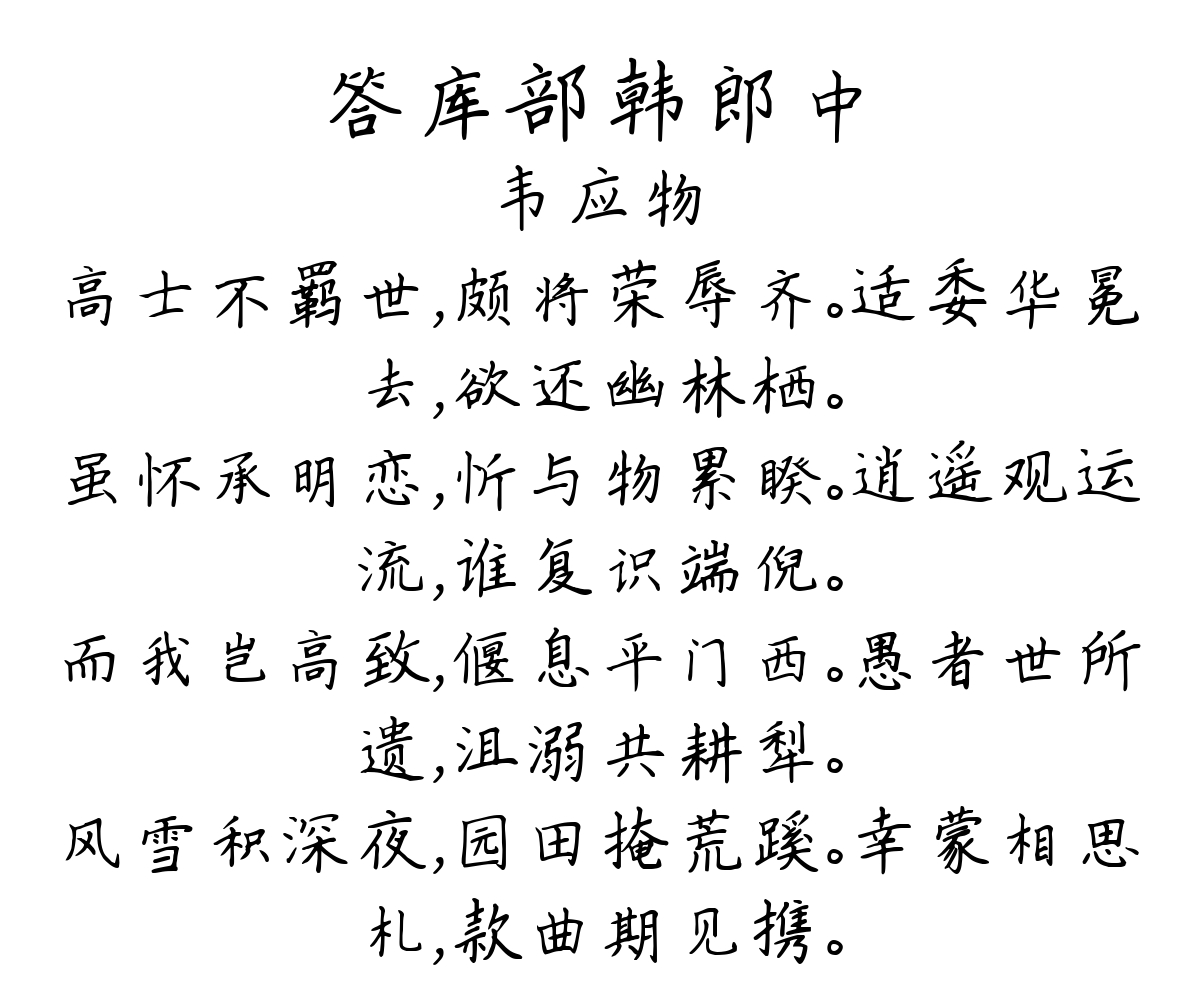 答库部韩郎中
韦应物
高士不羁世,颇将荣辱齐。适委华冕
去,欲还幽林栖。
虽怀承明恋,忻与物累睽。逍遥观运
流,谁复识端倪。
而我岂高致,偃息平门西。愚者世所
遗,沮溺共耕犁。
风雪积深夜,园田掩荒蹊。幸蒙相思
札,款曲期见携。